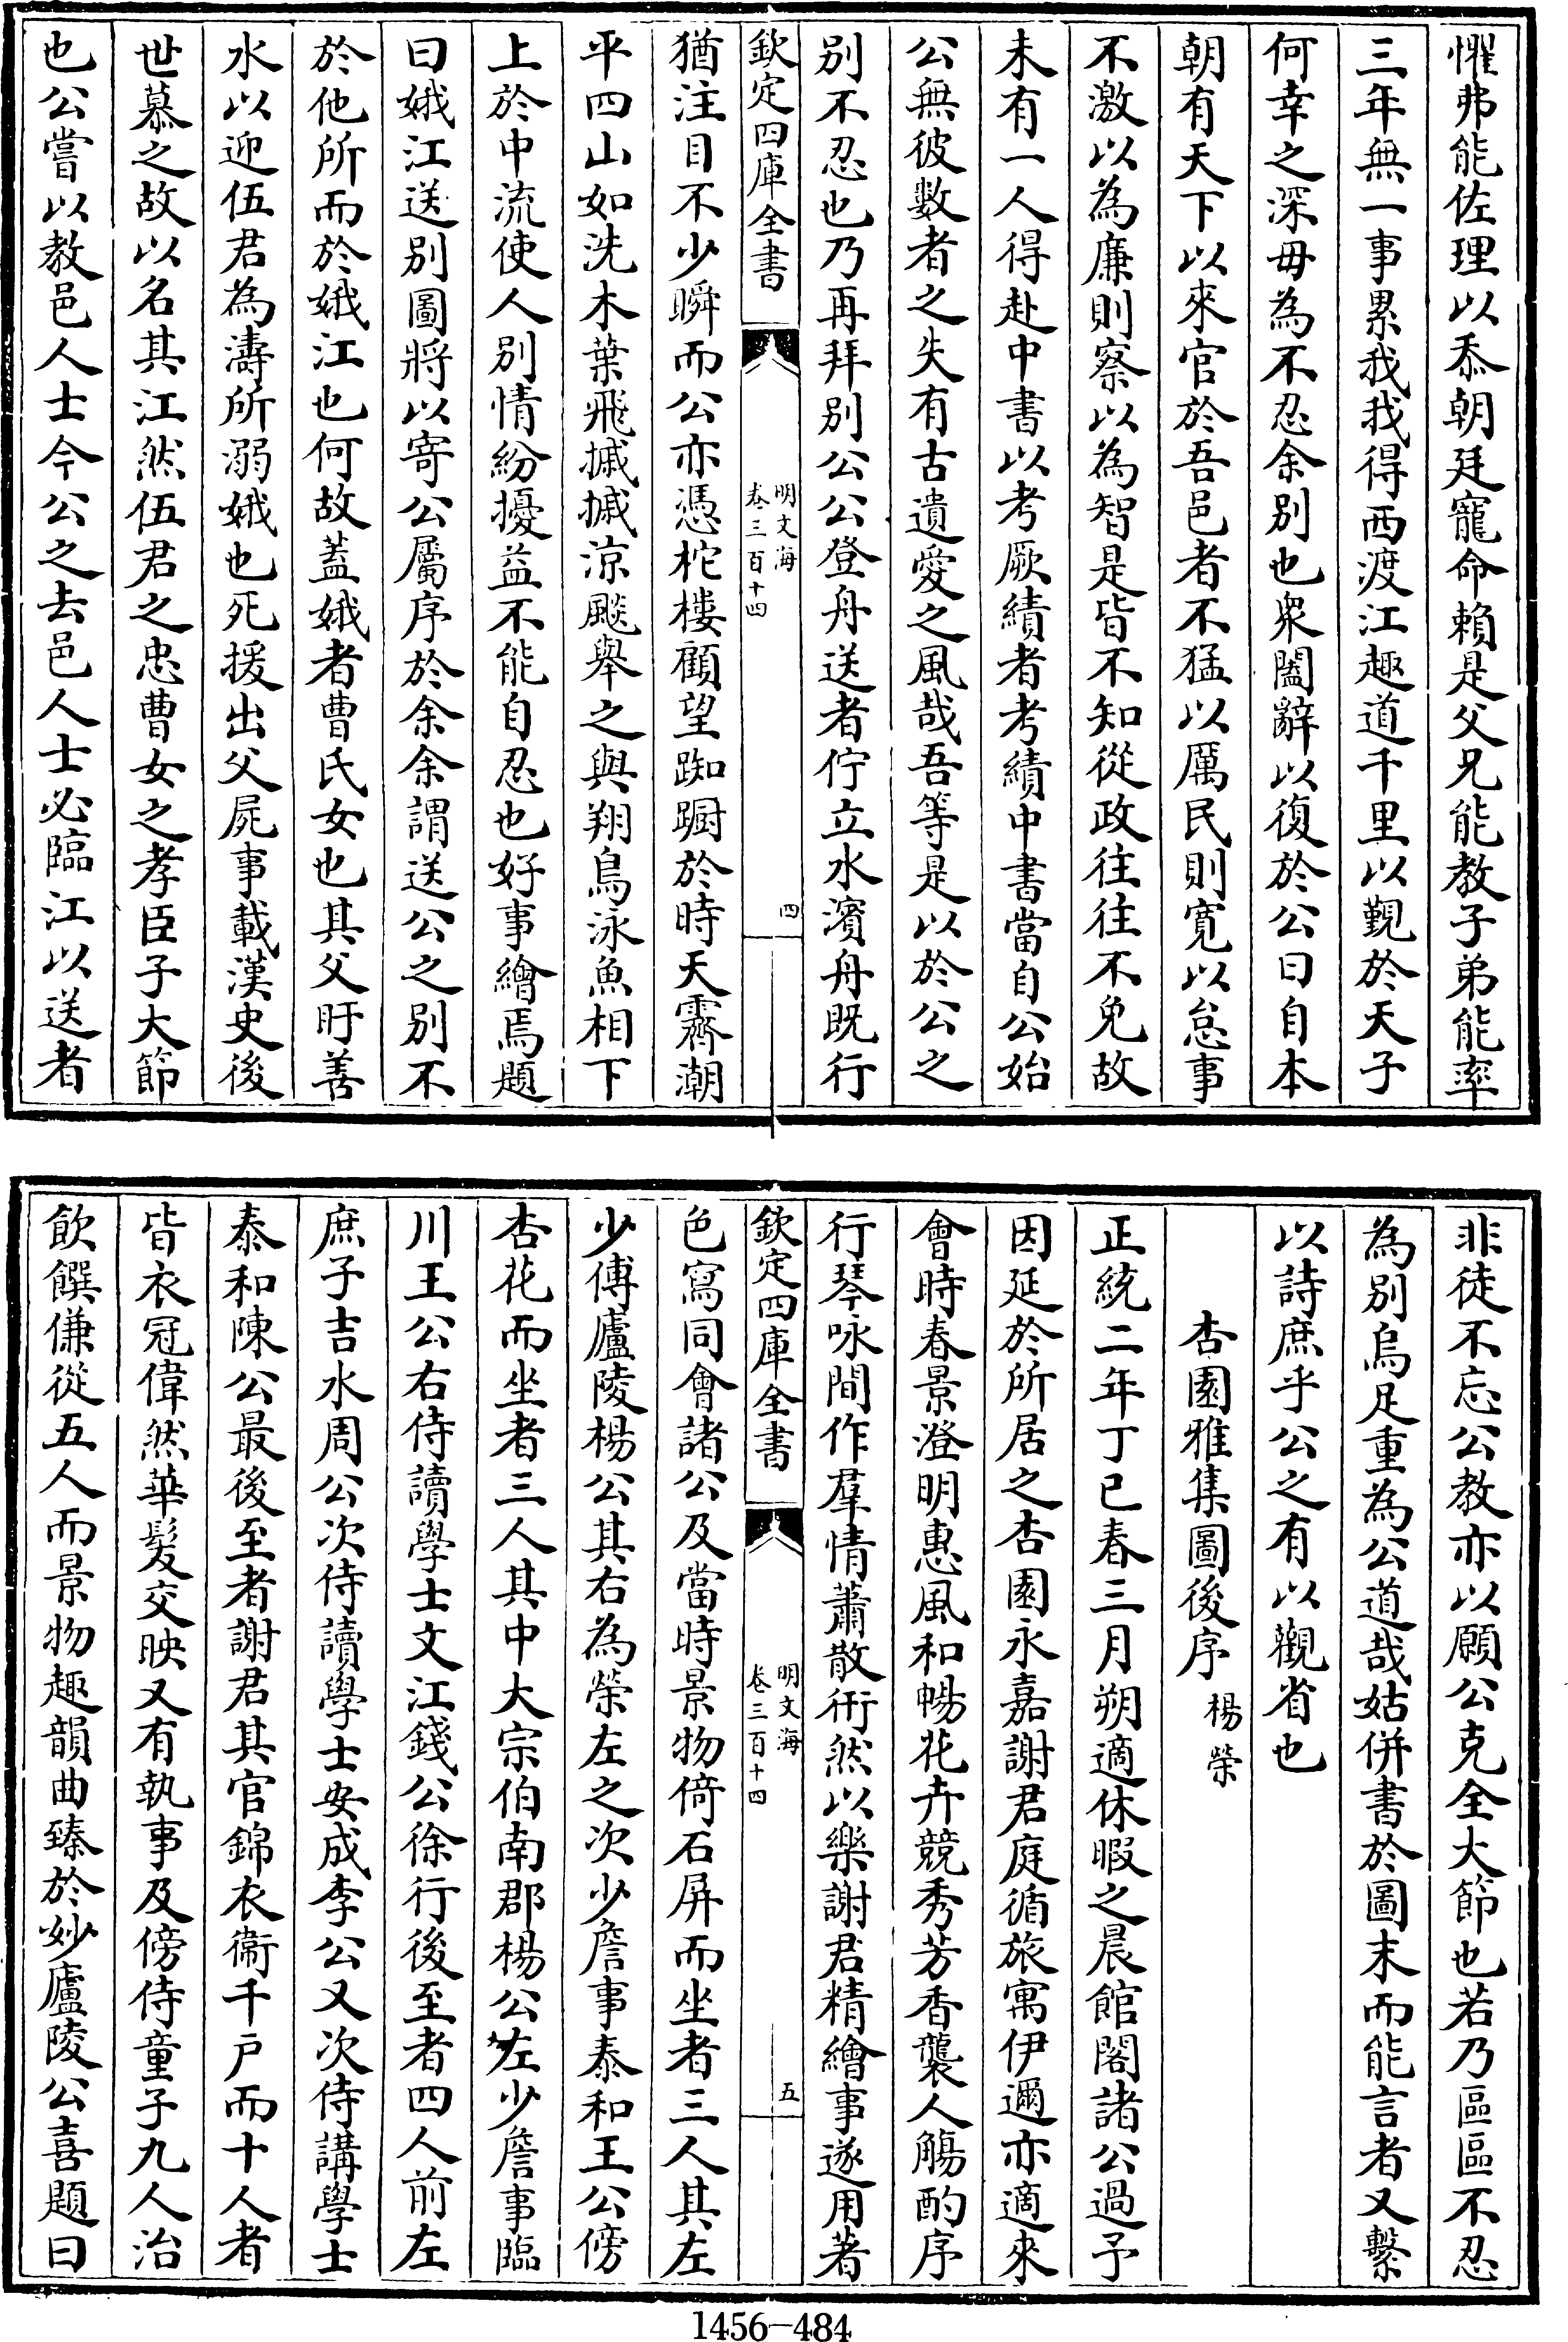 懼弗能佐理以忝朝廷寵命賴是父兄能教子弟能率
三年無一事累我我得西渡江趣道千里以覲於天子
何幸之深毋為不忍余别也衆闔辭以復於公曰自本
朝有天下以來官於吾邑者不猛以厲民則寛以怠事
不激以為廉則察以為智是皆不知從政往往不免故
未有一人得赴中書以考厥績者考績中書當自公始
公無彼數者之失有古遺愛之風哉吾等是以於公之
别不忍也乃再拜别公公登舟送者佇立水濱舟既行
欽定四庫全書
明文海
卷三百十四
四
猶注目不少瞬而公亦憑柁樓顧望踟蹰於時天霽潮
平四山如洗木葉飛摵摵涼颷舉之與翔鳥泳魚相下
上於中流使人别情紛擾益不能自忍也好事繪焉題
曰娥江送别圖將以寄公屬序於余余謂送公之别不
於他所而於娥江也何故葢娥者曹氏女也其父盱善
水以迎伍君為濤所溺娥也死援出父屍事載漢史後
世慕之故以名其江然伍君之忠曹女之孝臣子大節
也公嘗以教邑人士今公之去邑人士必臨江以送者
非徒不忘公教亦以願公克全大節也若乃區區不忍
為别烏足重為公道哉姑併書於圖末而能言者又繫
以詩庶乎公之有以觀省也
杏園雅集圖後序 楊榮
正統二年丁巳春三月朔適休暇之晨館閣諸公過予
因延於所居之杏園永嘉謝君庭循旅寓伊邇亦適來
會時春景澄明惠風和暢花卉競秀芳香襲人觴酌序
行琴咏間作羣情蕭散衎然以樂謝君精繪事遂用著
欽定四庫全書
明文海
卷三百十四
五
色寫同會諸公及當時景物倚石屏而坐者三人其左
少傅廬陵楊公其右為榮左之次少詹事泰和王公傍
杏花而坐者三人其中大宗伯南郡楊公左少詹事臨
川王公右侍讀學士文江錢公徐行後至者四人前左
庶子吉水周公次侍讀學士安成李公又次侍講學士
泰和陳公最後至者謝君其官錦衣衞千戶而十人者
皆衣冠偉然華髮交映又有執事及傍侍童子九人治
飲饌傔從五人而景物趣韻曲臻於妙廬陵公喜題曰
1456-484